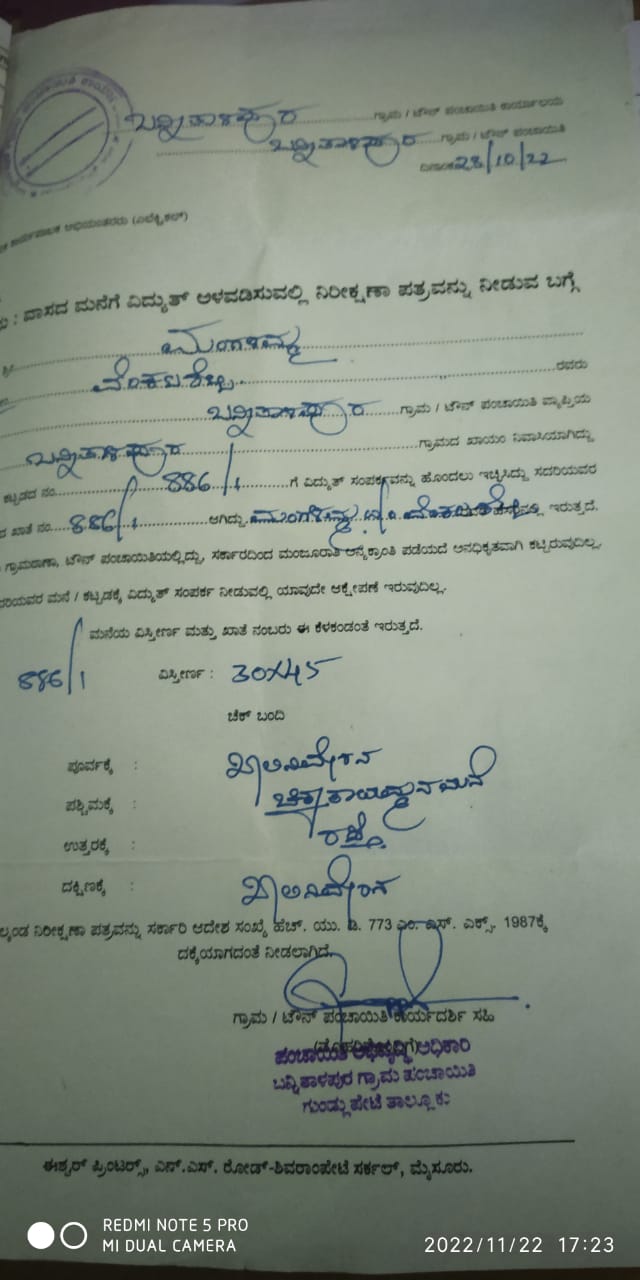 ಬನ್ನಿತಾಳಪುರ ಗ್ರಾಮ / ಟೌನ್ ಪಂಚಾಯಿತಿ ಕಾರ್ಯಾಲಯ
ಬನ್ನಿತಾಳಪುರ ಗ್ರಾಮ / ಟೌನ್ ಪಂಚಾಯಿತಿ
ದಿನಾಂಕ 28/10/22
ಕಾರ್ಯಪಾಲಕ ಅಭಿಯಂತರರು (ಎಲೆಕ್ಟ್ರಿಕಲ್)
: ವಾಸದ ಮನೆಗೆ ವಿದ್ಯುತ್ ಅಳವಡಿಸುವಲ್ಲಿ ನಿರೀಕ್ಷಣಾ ಪತ್ರವನ್ನು ನೀಡುವ ಬಗ್ಗೆ
ಶ್ರೀ ಮಂಗಳಮ್ಮ
ವೆಂಕಟಶೆಟ್ಟಿ ರವರು
ಬನ್ನಿತಾಳಪುರ ಗ್ರಾಮ / ಟೌನ್ ಪಂಚಾಯಿತಿ ವ್ಯಾಪ್ತಿಯ
ಬನ್ನಿತಾಳಪುರ ಗ್ರಾಮದ ಖಾಯಂ ನಿವಾಸಿಯಾಗಿದ್ದು
ಕಟ್ಟಡದ ನಂ. 886/1 ಗೆ ವಿದ್ಯುತ್ ಸಂಪರ್ಕವನ್ನು ಹೊಂದಲು ಇಚ್ಛಿಸಿದ್ದು ಸದರಿಯವರ
ಖಾತೆ ನಂ. 886/1 ಆಗಿದ್ದು ಮಂಗಳಮ್ಮ ಇರುತ್ತದೆ.
ಗ್ರಾಮಠಾಣಾ, ಟೌನ್ ಪಂಚಾಯಿತಿಯಲ್ಲಿದ್ದು, ಸರ್ಕಾರದಿಂದ ಮಂಜೂರಾತಿ ಅನ್ಯಕ್ರಾಂತಿ ಪಡೆಯದೆ ಅನಧಿಕೃತವಾಗಿ ಕಟ್ಟಿರುವುದಿಲ್ಲ.
ಮನೆ / ಕಟ್ಟಡಕ್ಕೆ ವಿದ್ಯುತ್ ಸಂಪರ್ಕ ನೀಡುವಲ್ಲಿ ಯಾವುದೇ ಆಕ್ಷೇಪಣೆ ಇರುವುದಿಲ್ಲ.
ಮನೆಯ ವಿಸ್ತೀರ್ಣ ಮತ್ತು ಖಾತೆ ನಂಬರು ಈ ಕೆಳಕಂಡಂತೆ ಇರುತ್ತದೆ.
886/1 ವಿಸ್ತೀರ್ಣ : 30X45
ಚೆಕ್ ಬಂದಿ
ಪೂರ್ವಕ್ಕೆ : ಖಾಲಿನಿವೇಶನ
ಪಶ್ಚಿಮಕ್ಕೆ : ಮನೆ
ಉತ್ತರಕ್ಕೆ : ರಸ್ತೆ
ದಕ್ಷಿಣಕ್ಕೆ : ಖಾಲಿನಿವೇಶನ
ನಿರೀಕ್ಷಣಾ ಪತ್ರವನ್ನು ಸರ್ಕಾರಿ ಆದೇಶ ಸಂಖ್ಯೆ ಹೆಚ್. ಯು. ಡಿ. 773 ಎಂ. ಎಸ್. ಎಕ್ಸ್. 1987ಕ್ಕೆ
ದಕ್ಕೆಯಾಗದಂತೆ ನೀಡಲಾಗಿದೆ.
ಗ್ರಾಮ / ಟೌನ್ ಪಂಚಾಯಿತಿ ಕಾರ್ಯದರ್ಶಿ ಸಹಿ
ಪಂಚಾಯಿತಿ ಅಭಿವೃದ್ಧಿ ಅಧಿಕಾರಿ
ಬನ್ನಿತಾಳಪುರ ಗ್ರಾಮ ಪಂಚಾಯಿತಿ
ಗುಂಡ್ಲುಪೇಟೆ ತಾಲ್ಲೂಕು
ಈಶ್ವರ್ ಪ್ರಿಂಟರ್ಸ್, ಎನ್.ಎಸ್. ರೋಡ್-ಶಿವರಾಂಪೇಟೆ ಸರ್ಕಲ್, ಮೈಸೂರು.
REDMI NOTE 5 PRO
MI DUAL CAMERA
2022/11/22 17:23